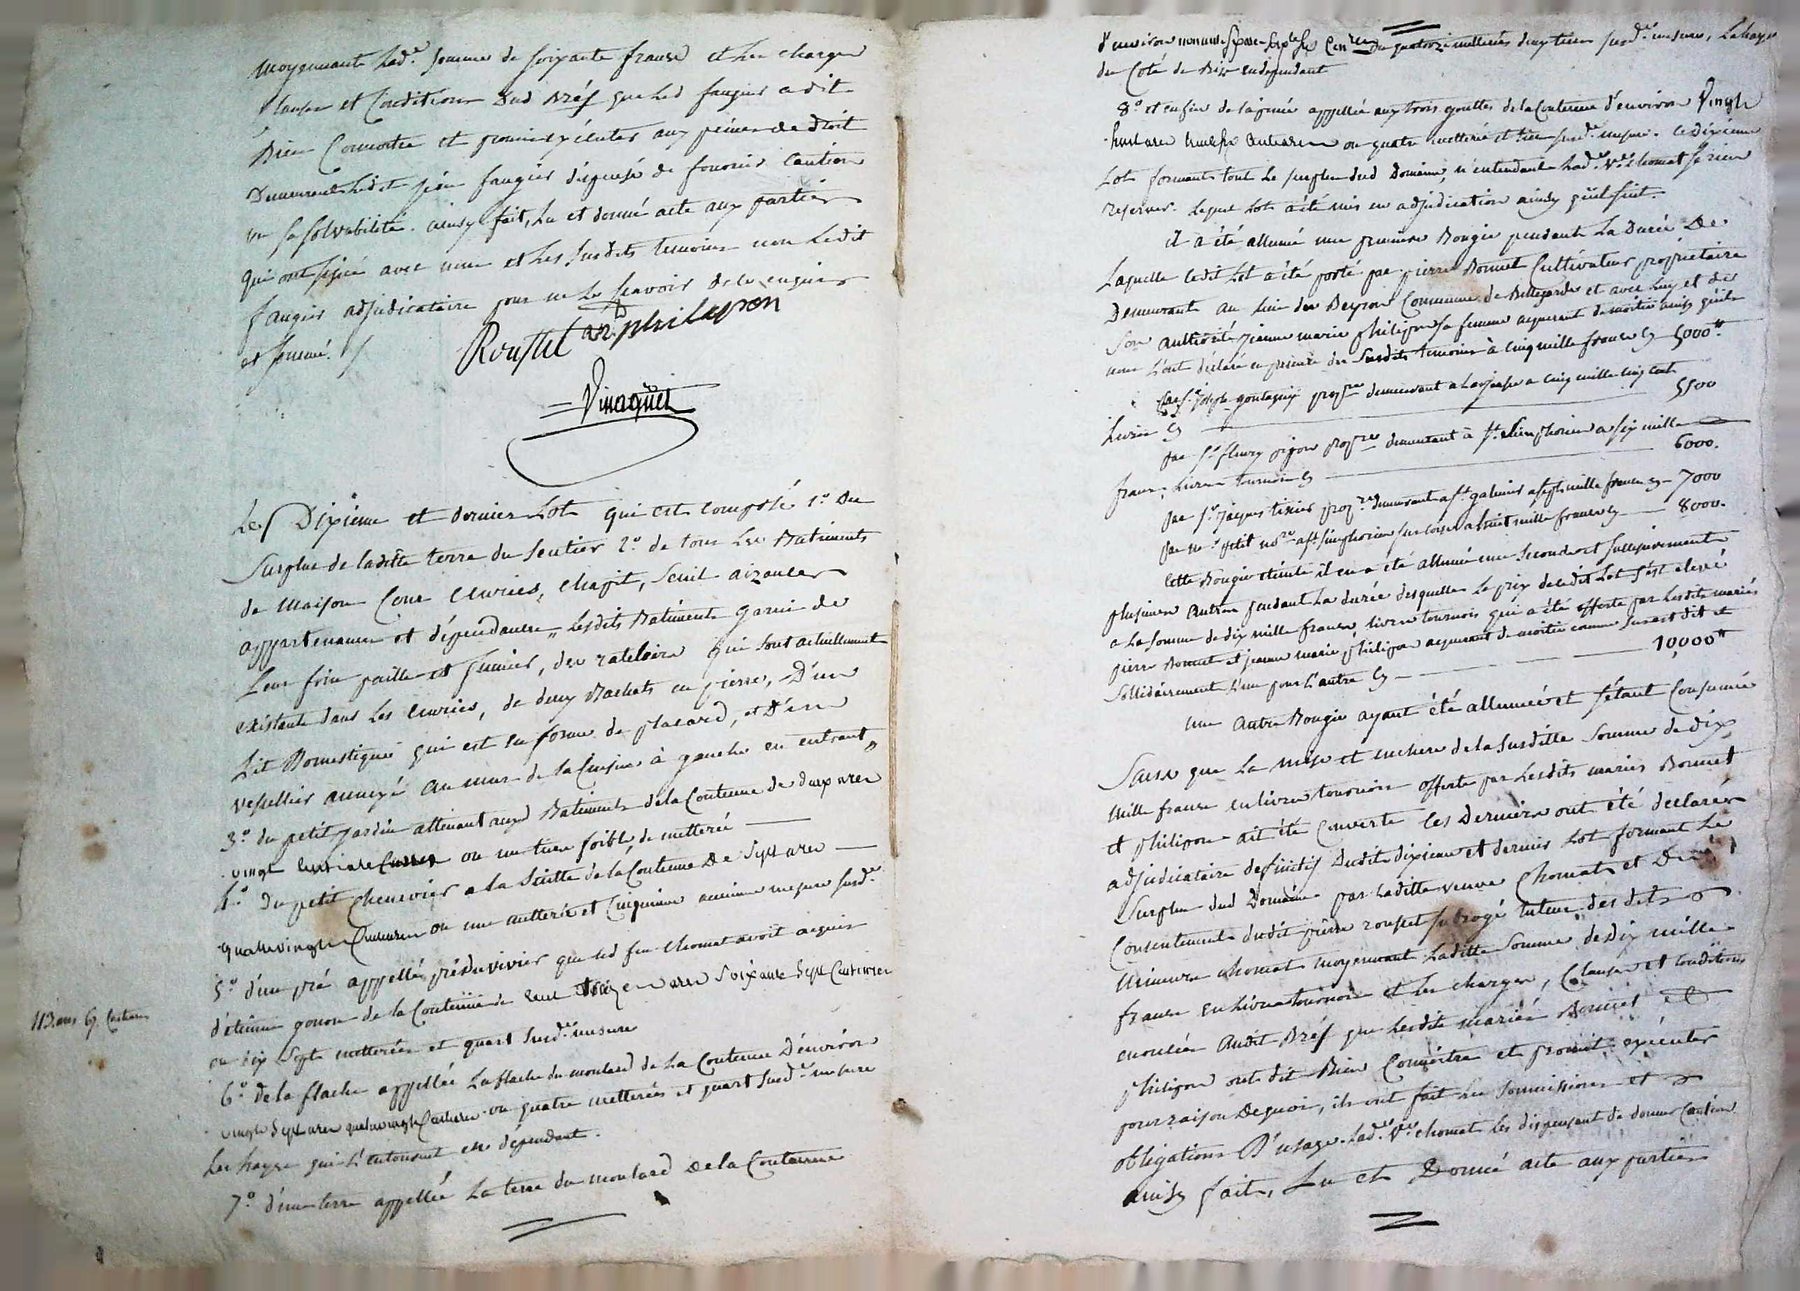 moyennant lad.e somme de soixante francs et les charges
clauses et Conditions dud Bref que led faugier a dit
Bien Connoitre et promis exécuter aux peines de droit
Demeurant ledit sieur faugier dispensé de fournir Caution
vu sa solvabilité. ainsy fait, Lu et donné acte aux parties
qui ont signé avec nous et les susdits temoins non Ledit
faugier adjudicataire pour ne Le scavoir de ce enquis
et sommé.
Rouffet philipon
Vinagner
Le Dixieme et dernier Lot qui est composé 1.o Du
Surplus de laditte terre du Sentier 2.o de tous Les Batiments
de Maison Cour Ecuries, chapit, Seuil aizances
appartenances et dépendances, Lesdits Batiments garni de
Leur foin paille et fumier, des rateliers qui sont actuellement
existants dans les Ecuries, de deux Bachats en pierre, D'un
Lit Domestique qui est en forme de placard, et D'un
vesselier annexé au mur de la Cuisine à gauche en entrant,
3.o du petit jardin attenant auxd Batiments de la Contenue de deux ares
vingt centiares ou un tiers foible de metterée
4.o Du petit chenevier a la Suitte de la Contenue De Sept ares
quatrevingt Centiares ou une metterée et Cinquieme ancienne mesure susd.e
5.o d'un pré appellé pré du vivier que led feu chomat avoit acquis
d'étienne gonon de la Contenue de cent treize ares Soixante Sept Centiares
113. ares 67 Centiares
ou dix Sept metterées et quart Susd.e mesure
6.o de la flache appellée La flache du moulard de La Contenue D'environ
vingt Sept ares quatrevingt Centiares ou quatre metterées et quart Susd.e mesure
Les hayes qui L'entourent en dépendant.
7.o d'une terre appellée La terre du moulard De la Contenue
d'environ Cen.res ou quatorze metterées deux tiers susd.e mesure, La haye
du Coté de Bize en dependant
8.o et enfin de appellée aux trois gouttes de la Contenue d'environ Vingt
huit ares Centiares ou quatre metterée et tiers susd.e mesure. Ce dixieme
Lot formant tout le surplus dud Domaine, n'entendant Lad.e V.e chomat s'y rien
reserver. Lequel Lot a été mis en adjudication ainsy qu'il suit.
il a été allumé une premiere Bougie pendant La Durée De
Laquelle Ledit Lot a été porté par pierre Bonnet Cultivateur propriétaire
Demeurant au lieu de Beyron Commune de Bellegarde et avec luy et de
Son authorité Jeanne marie philipon sa femme acquerant de moitié ainsy qu'ils
nous L'ont déclaré en présence des Susdits temoins à Cinq mille francs Cy 5000.tt
par s.r joseph goutagny prop.re demeurant a a Cinq mille Cinq cent
Livres Cy 5500
par s.r fleury pijon prop.re demeurant à s.t Simphorien a six mille
francs, Livres tournois Cy 6000.
par s.r jacques tixier prop.re demeurant a s.t galmier a sept mille francs Cy 7000
par m.r petit no.re a s.t simphorien sur coise a huit mille francs Cy 8000.
Cette Bougie éteinte il en a été allumé une Seconde et successivement
plusieurs Autres pendant La durée desquelles Le prix dudit Lot s'est elevé
a La somme de dix mille francs, livres tournois qui a été offerte par Lesdits mariés
pierre Bonnet et jeanne marie philipon acquerant de moitié comme Susest dit et
Sollidairement L'un pour L'autre Cy 10,000.tt
une Autre Bougie ayant été allumée et s'étant Consumée
Sans que La mise et enchere de la Susditte Somme de dix
mille francs en livres tournois offerte par Lesdits mariés Bonnet
et philipon ait été Couverte Ces Derniers ont été declarés
adjudicataire definitif Dudit dixieme et dernier Lot formant Le
Surplus dud Domaine par Laditte veuve Chomat et Du
Consentement dudit pierre rouffet subrogé tuteur desdits
Mineurs chomat moyennant Laditte Somme de dix mille
francs en Livres tournois et Les charges, Clauses et Conditions
enoncées Audit Bref que Lesdits mariés Bonnet et
philipon ont dit Bien Connoitre et promis exécuter
pour raison Dequoi, ils ont fait Les Soumissions et
obligations D'usage. Lad.e V.e chomat les dispensant de donner Caution
ainsy fait, Lu et Donné acte aux parties